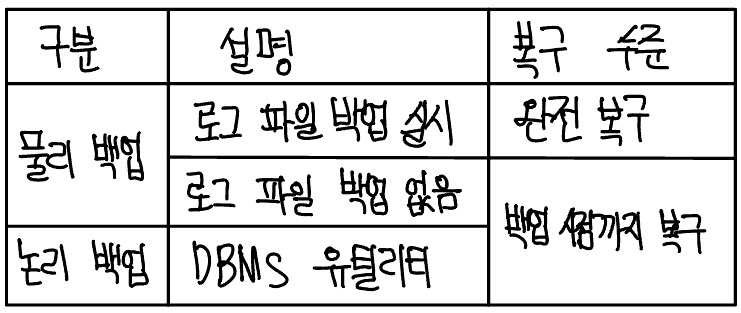 구분 설명 복구 수준
물리 백업 로그 파일 백업 실시 완전 복구
로그 파일 백업 없음 백업 시점까지 복구
논리 백업 DBMS 유틸리티